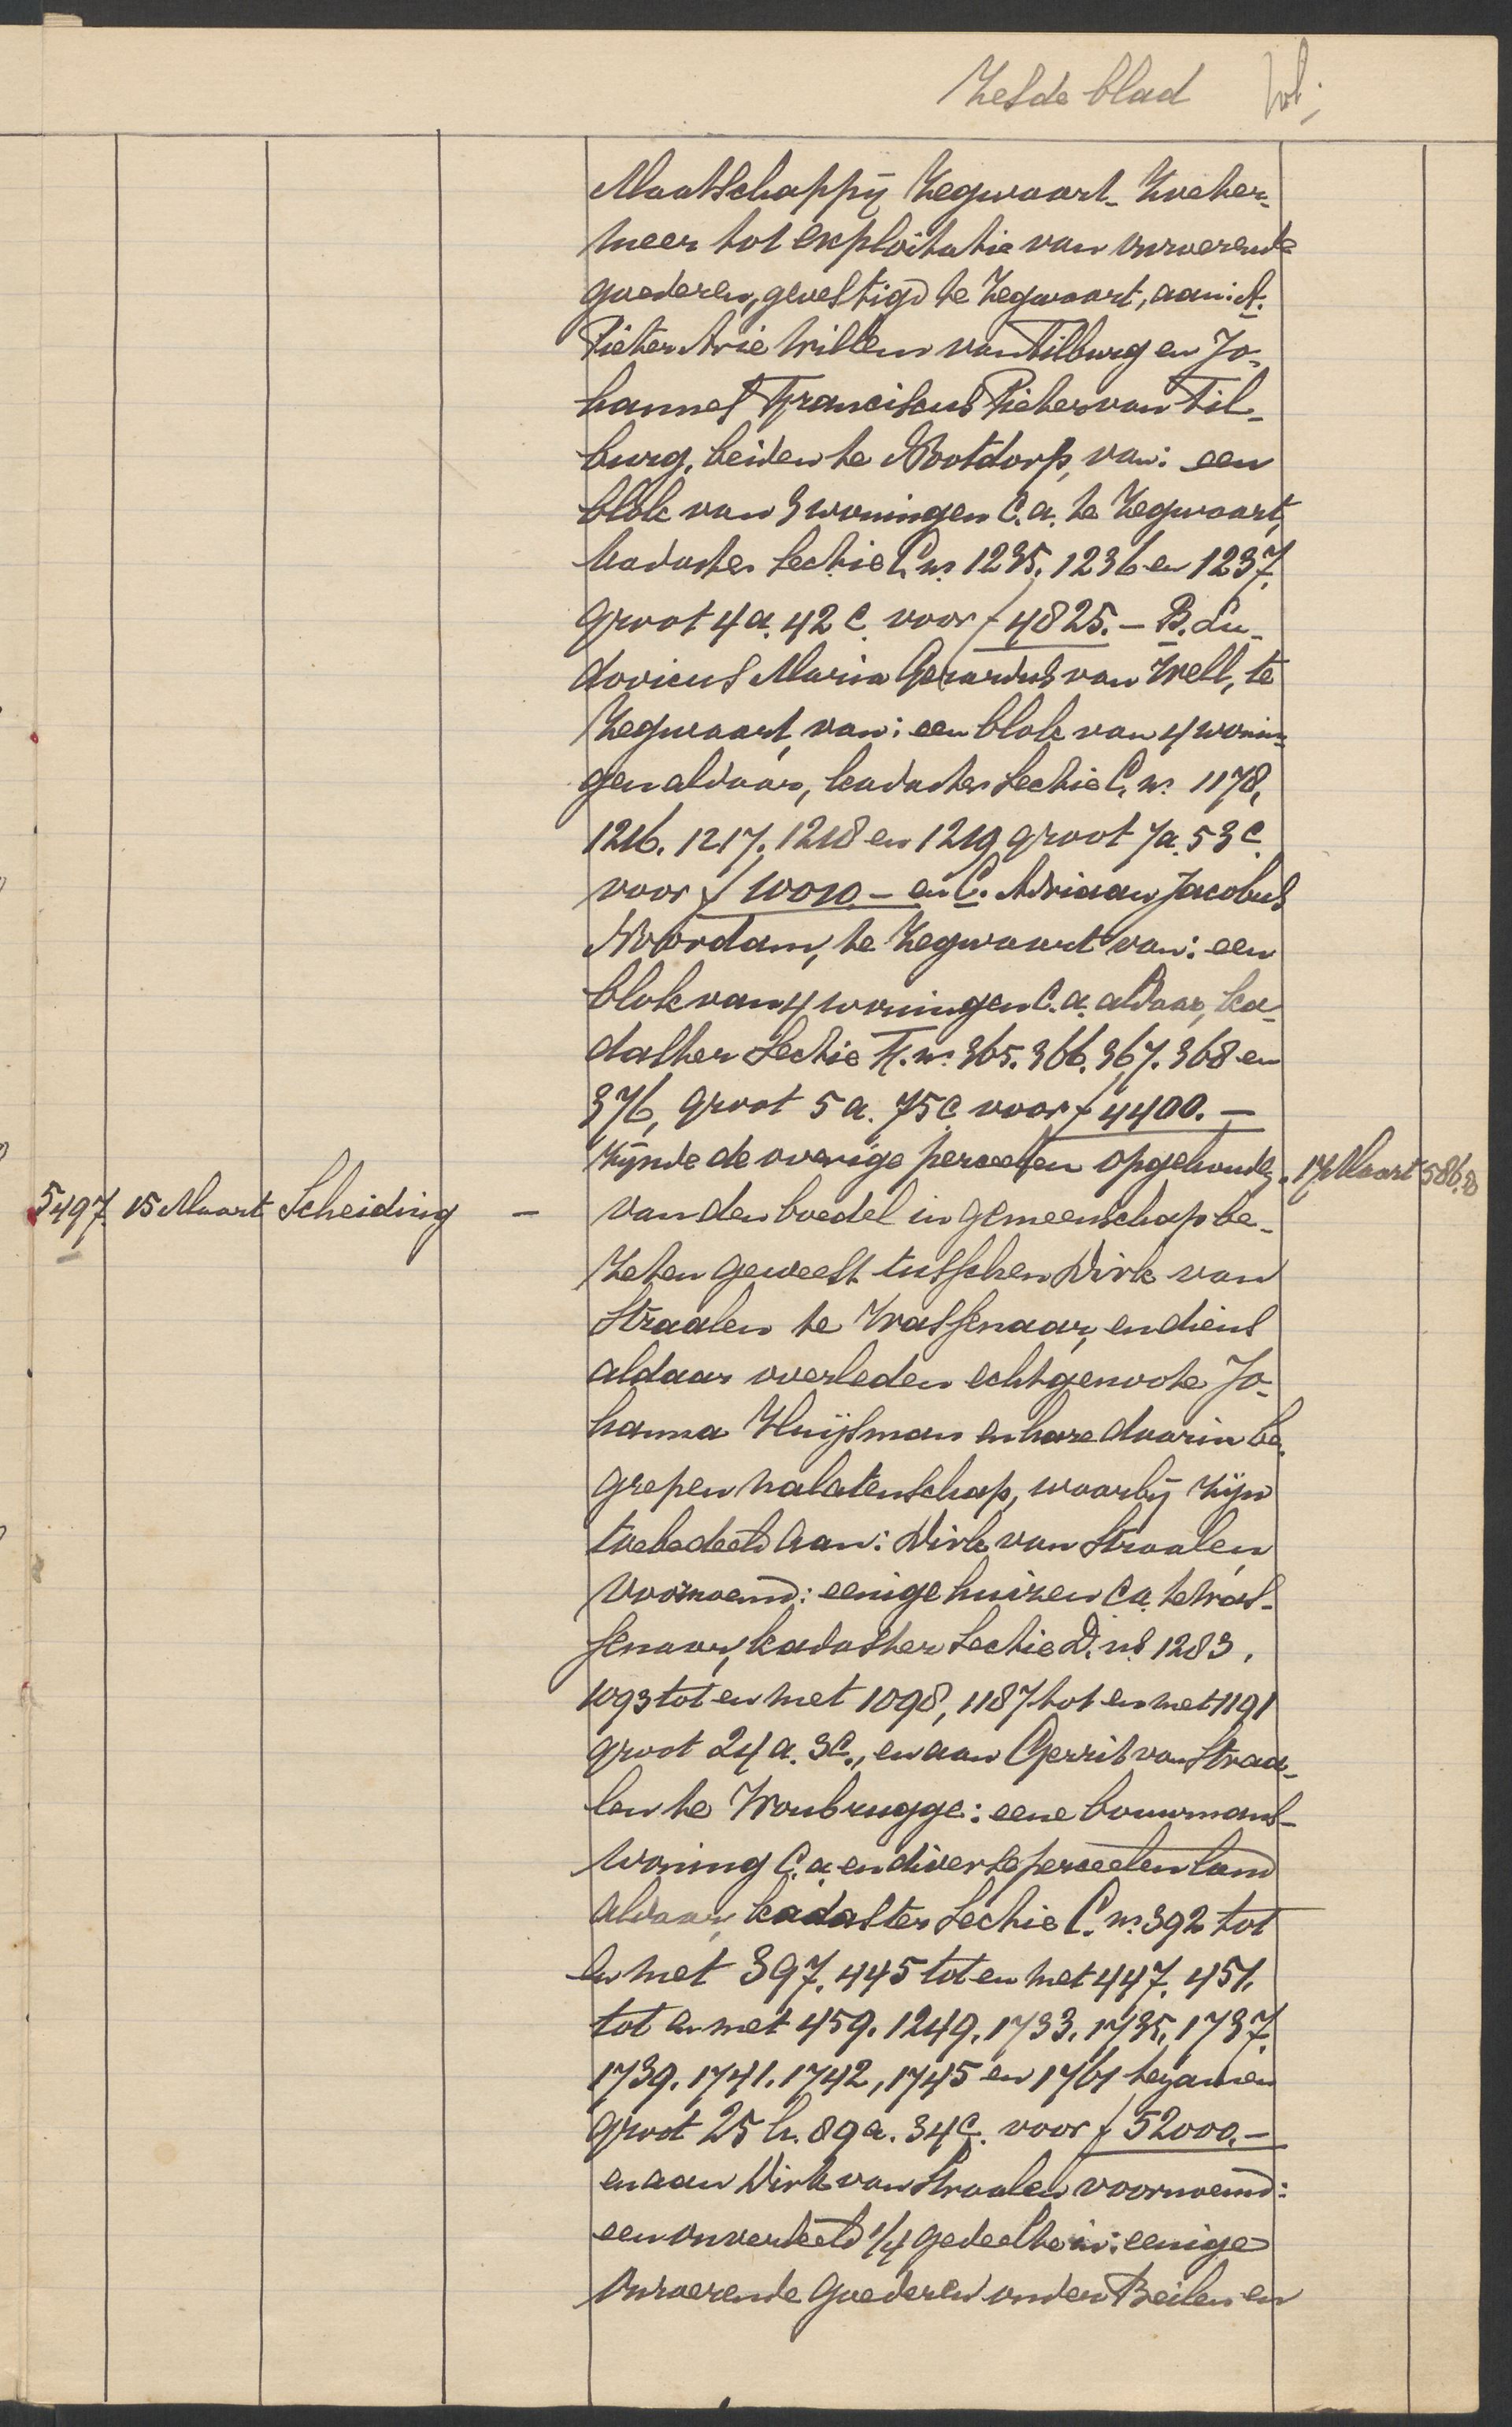 Zesde blad
Maatschappij Zegwaart-Zoeter-
meer tot exploitatie van onroerende
goederen, gevestigd te Zegwaart, aan: A.
Pieter Arie Willem van Tilburg en Jo-
hannes Franciscus Pieter van Til-
burg, beiden te Nootdorp, van: een
blok van 3 woningen c.a. te Zegwaart,
kadaster sectie C. nr. 1235. 1236 en 1237.
groot 4 a. 42 c. voor f 4825.- B. Lu-
dovicus Maria Gerardus van Well, te
Zegwaart, van: een blok van 4 wonin-
gen aldaar, kadaster sectie C. nr. 1178,
1216. 1217. 1218 en 1219 groot 7 a. 53 c.
voor f 10010.- en C. Adriaan Jacobus
Noordam, te Zegwaart van: een
blok van 4 woningen c.a. aldaar, ka-
daster sectie F. nr. 365. 366. 367. 368 en
376, groot 5 a. 75 c. voor f 4400.-
Zijnde de overige perceelen opgehouden.
5497 15 Maart Scheiding - van den boedel in gemeenschap be- 17 Maart 586.
zeten geweest tusschen Dirk van
Straalen te Wassenaar, en diens
aldaar overleden echtgenoote Jo-
hanna Huijsman en hare daarin be-
grepen nalatenschap, waarbij zijn
toebedeeld aan: Dirk van Straalen
voornoemd: eenige huizen c.a. te Was-
senaar, kadaster sectie D. nrs 1283.
1093 tot en met 1098, 1187 tot en met 1191
groot 24 a. 3 c., en aan Gerrit van Straa-
len te Woubrugge: eene bouwmans-
woning c.a. en diverse perceelen land
aldaar, kadaster sectie C. nr. 392 tot
en met 397. 445 tot en met 447. 451.
tot en met 459. 1249. 1733. 1735. 1737.
1739. 1741. 1742, 1745 en 1761 tezamen
groot 25 h. 89 a. 34 c. voor f 52000.-
en aan Dirk van Straalen voornoemd:
een onverdeeld 1/4 gedeelte in: eenige
onroerende goederen onder Beilen en